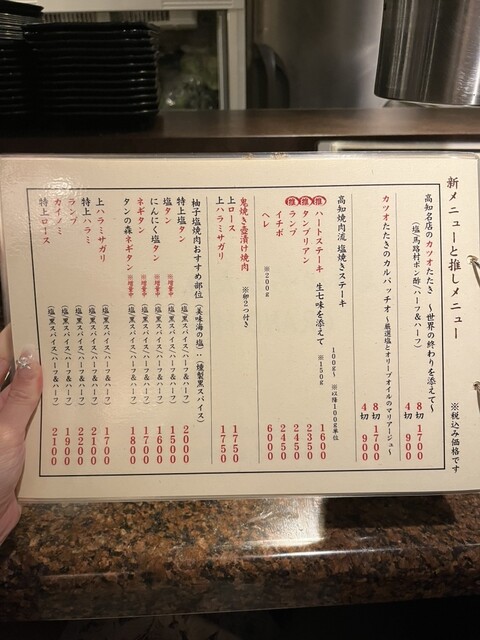 新メニューと推しメニュー
※税込み価格です
高知名店のカツオたたき 〜世界の終わりを添えて〜
(塩/馬路村ポン酢/ハーフ&ハーフ)
8切 1700
4切 900
カツオたたきのカルパッチオ〜厳選塩とオリーブオイルのマリアージュ〜
8切 1700
4切 900
高知焼肉流 塩焼きステーキ
100g〜 ※以降100g単位
推 ハートステーキ 生七味を添えて ※150g 1600
推 タンブリアン 2350
推 ランプ 2450
イチボ 2450
ヘレ ※200g 6000
鬼焼き壺漬け焼肉 ※卵2つ付き
上ロース 1750
上ハラミサガリ 1750
柚子塩焼肉おすすめ部位 (美味海の塩)：(燻製黒スパイス)
特上塩タン (塩/黒スパイス/ハーフ&ハーフ) 2000
塩タン ※増量中 (塩/黒スパイス/ハーフ&ハーフ) 1500
にんにく塩タン ※増量中 (塩/黒スパイス/ハーフ&ハーフ) 1600
ネギタン ※増量中 (塩/黒スパイス/ハーフ&ハーフ) 1700
タンの森ネギタン ※増量中 (塩/黒スパイス/ハーフ&ハーフ) 1800
上ハラミサガリ (塩/黒スパイス/ハーフ&ハーフ) 1700
特上ハラミ (塩/黒スパイス/ハーフ&ハーフ) 2100
ランプ (塩/黒スパイス/ハーフ&ハーフ) 2200
カイノミ (塩/黒スパイス/ハーフ&ハーフ) 1900
特上ロース (塩/黒スパイス/ハーフ&ハーフ) 2100